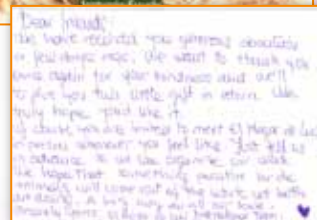 Dear friends:
We have received your generous donation
a few days ago. We want to thank you
once again for your kindness and we'll
to give you this little gift in return. We
truly hope you'd like it.
Of course, you are invited to meet El Hogar de Luci
in person whenever you feel like. Just tell us
in advance so we can organize our work.
We hope that something positive for the
animals will come out of the work we both
are doing. A big hug and all our love.